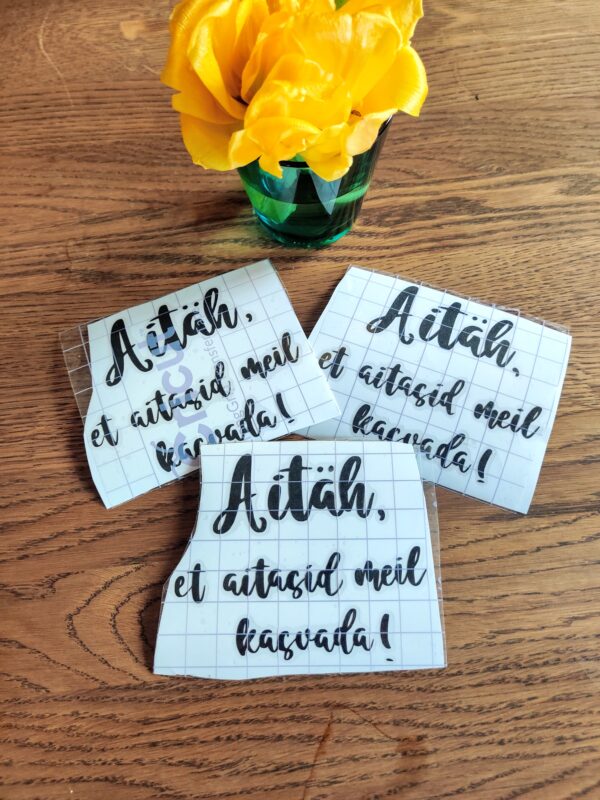 Aitäh,
et aitasid meil
kasvada!
Aitäh,
et aitasid meil
kasvada!
Aitäh,
et aitasid meil
kasvada!